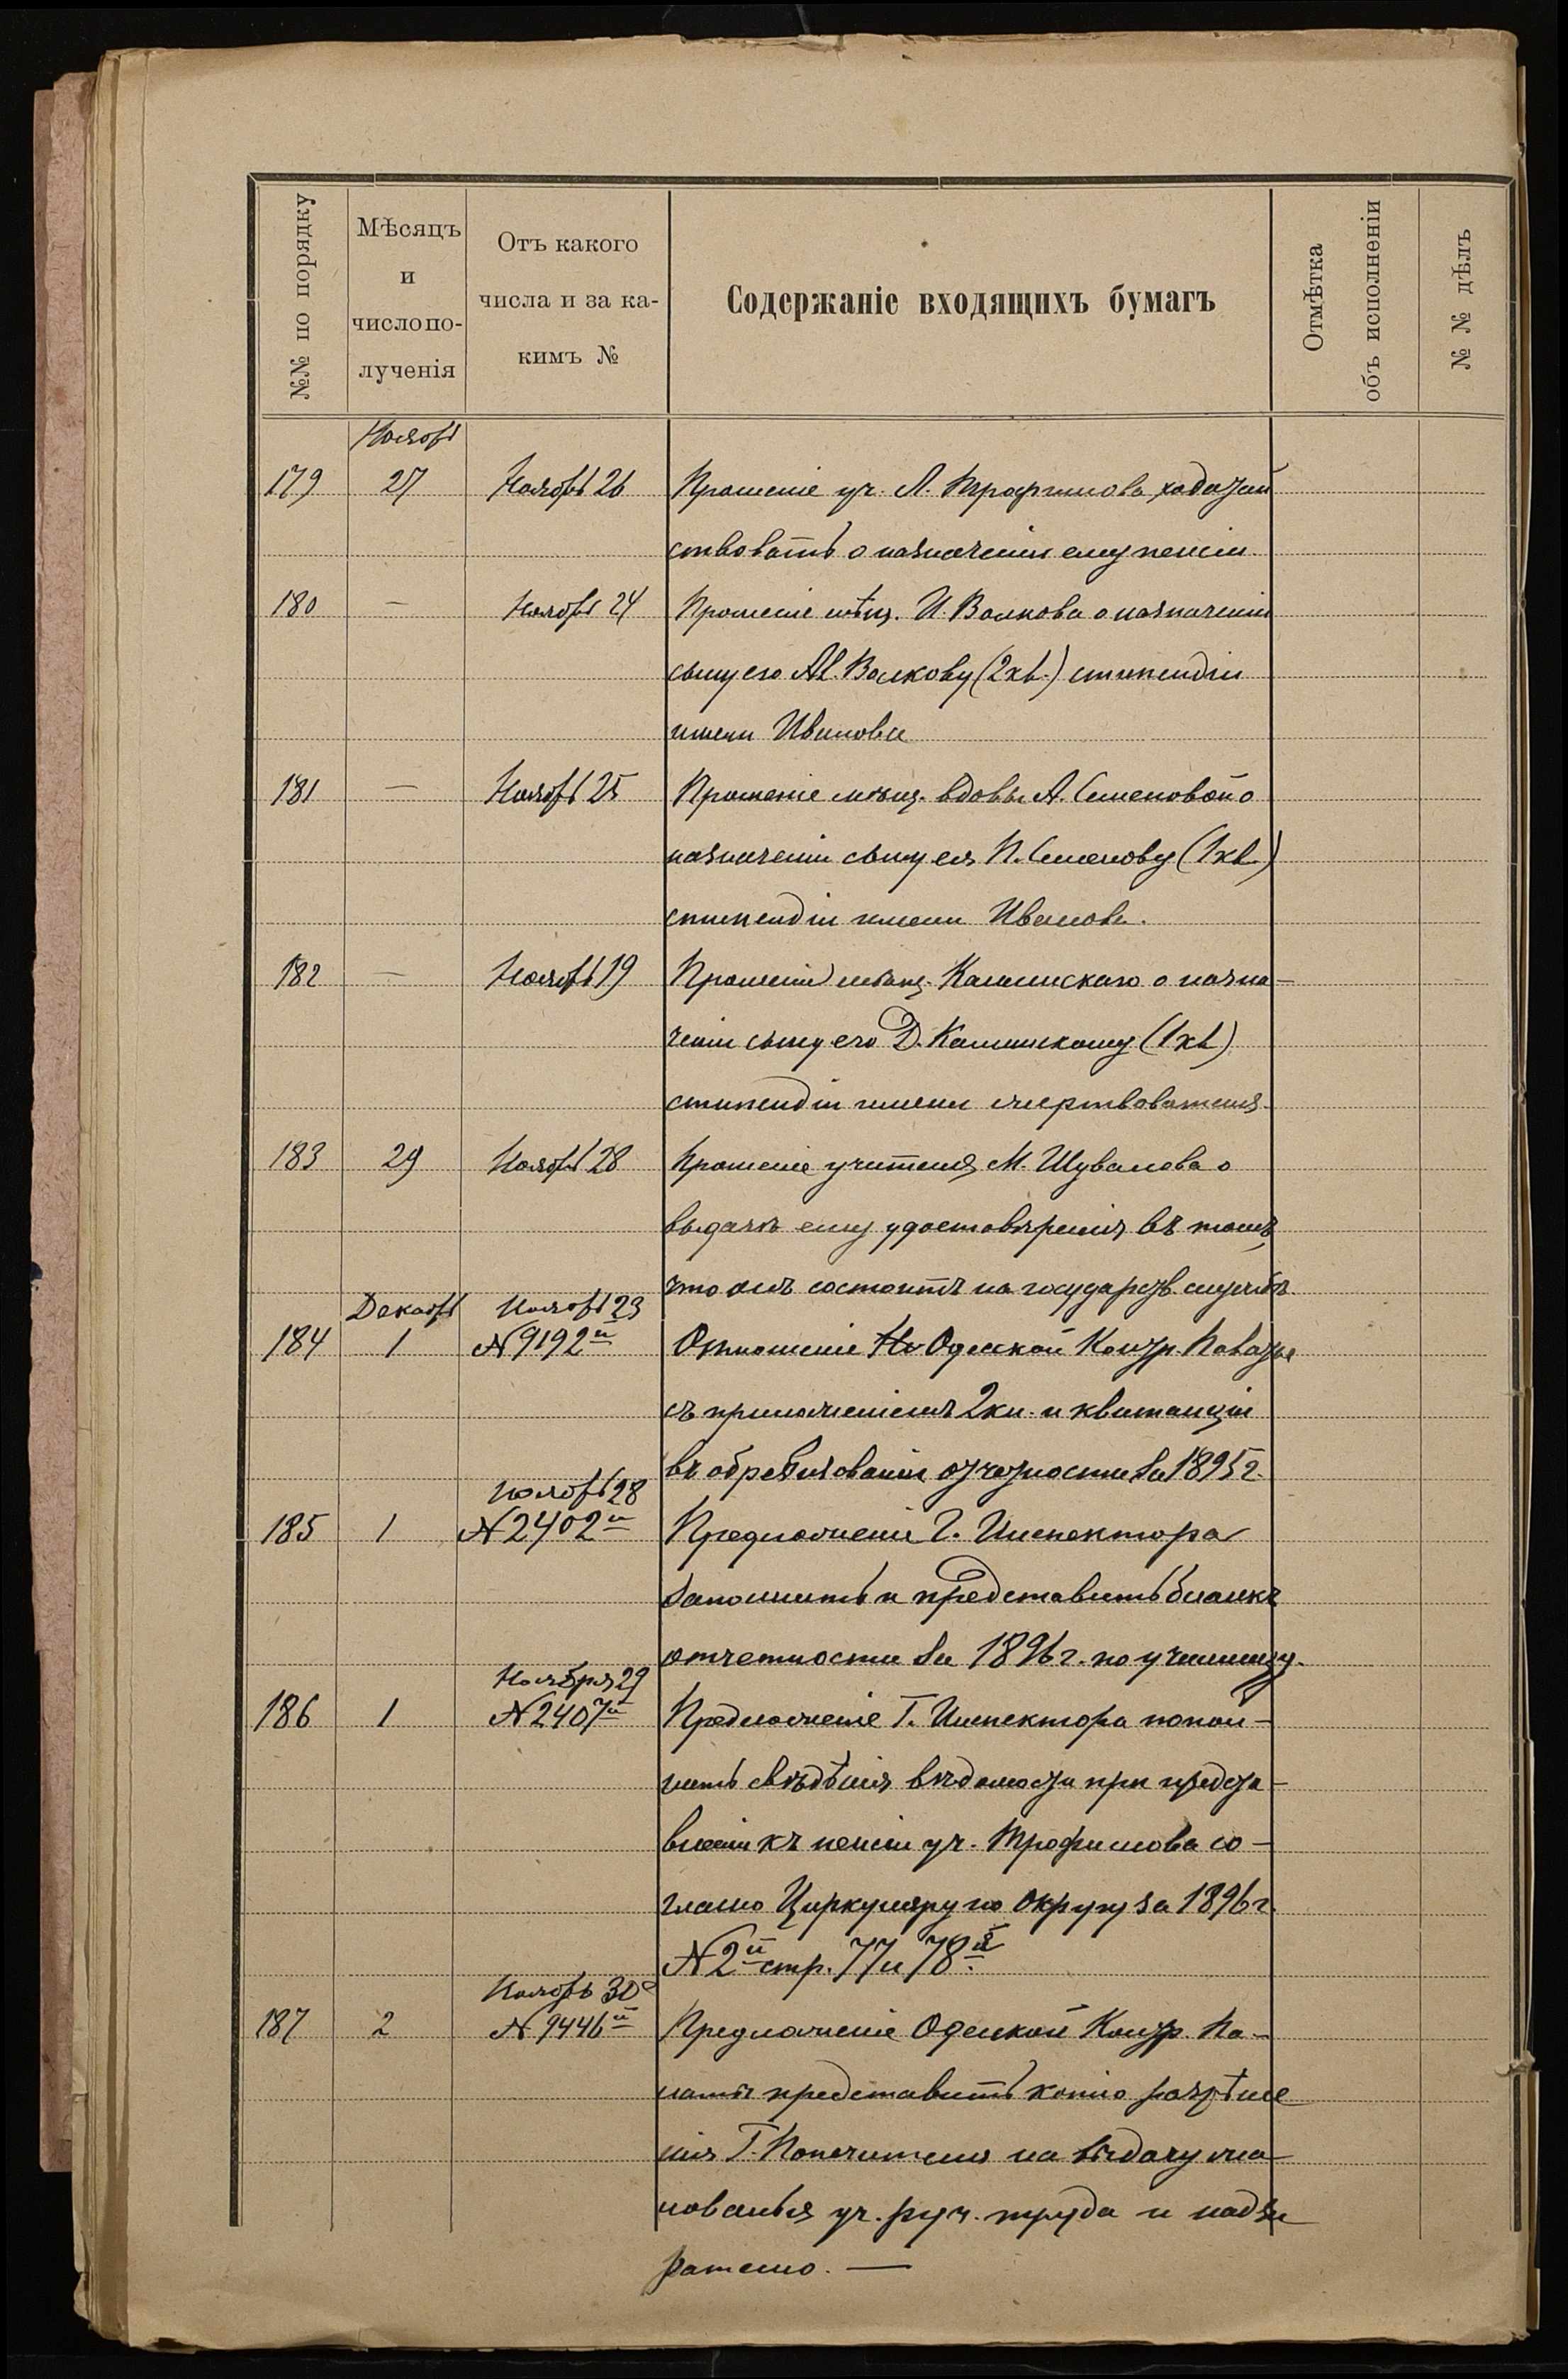 №№ по порядку
Мѣсяцъ
и
число по-
лученія
Отъ какого
числа и за ка-
кимъ №
Содержаніе входящихъ бумагъ
Отмѣтка
объ исполненіи
№ № дѣлъ
Ноябрь
179 27 Ноябрь 26 Прошеніе уч. Л. Трофимова ходатай
ствовать о назначеніи ему пенсіи
180 — Ноябрь 24 Прошеніе мѣщ. И. Волкова о назначеніи
сыну его Ал. Волкову (2 кл.) стипендіи
имени Иванова
181 — Ноябрь 25 Прошеніе мѣщ. вдовы А. Семеновой о
назначеніи сыну ея П. Семенову (1 кл.)
стипендіи имени Иванова.
182 — Ноябрь 19 Прошеніе мѣщ. Калинскаго о назна-
ченіи сыну его Д. Калинскому (1 кл)
стипендіи имени жертвователя
183 29 Ноябрь 28 Прошеніе учителя М. Шувалова о
выдачѣ ему удостовѣренія въ томъ,
что онъ состоитъ на государств. службѣ.
Декабрь Ноябрь 23
184 1 № 9192й Отношеніе Одесской Контр. Палаты
съ приложеніемъ 2 кн. и квитанціи
въ обревизованіи отчетности за 1895 г.
Ноябрь 28
185 1 № 2402й Предложеніе Г. Инспектора
заполнить и представить бланкъ
отчетности за 1896 г. по училищу.
Ноября 29
186 1 № 2407й Предложеніе Г. Инспектора попол-
нить свѣдѣнія вѣдомости при предста-
вленіи къ пенсіи уч. Трофимова со-
гласно Циркуляру по Округу за 1896 г.
№ 2й стр. 77 и 78й.
Ноябрь 30
187 2 № 9446й Предложеніе Одесской Контр. Па-
латы представить копію разрѣше
нія Г. Попечителя на выдачу жа-
лованья уч. руч. труда и надзи
рателю. —